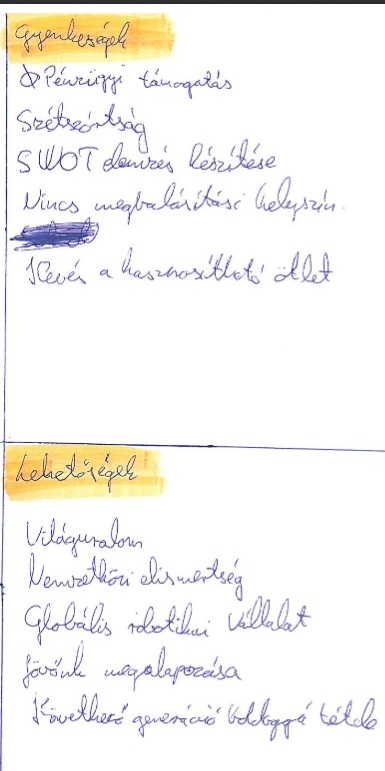 Gyengeségek
Pénzügyi támogatás
Szétszórtság
SWOT elemzés készítése
Nincs megvalósítási helyszín.
Kevés a hasznosítható ötlet
Lehetőségek
Világuralom
Nemzetközi elismertség
Globális robotikai vállalat
Jövőnk megalapozása
Következő generáció boldoggá tétele